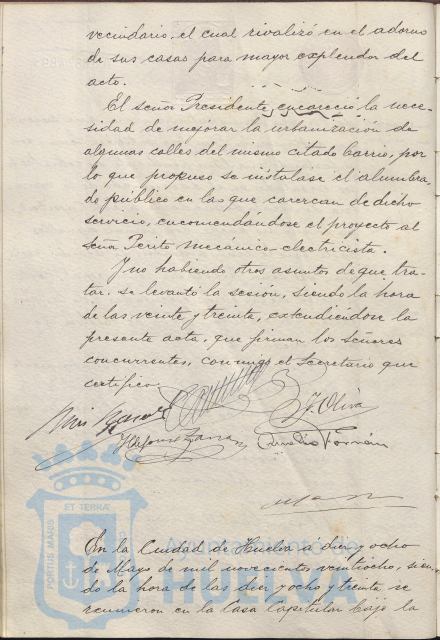 vecindario, el cual rivalizó en el adorno
de sus casas para mayor explendor del
acto.
El señor Presidente, encareció la nece-
sidad de mejorar la urbanización de
algunas calles del mismo citado barrio, por
lo que propuso se instalase el alumbra-
do público en las que carezcan de dicho
servicio, encomendándose el proyecto al
señor Perito mecánico-electricista.
Y no habiendo otros asuntos de que tra-
tar, se levantó la sesión, siendo la hora
de las veinte y treinta, extendiendose la
presente acta, que firman los Señores
concurrentes, conmigo el Secretario que
certifico.
J. Oliva
PORTUS MARIS ET TERRÆ
Ayuntamiento de
HUELVA
En la Ciudad de Huelva a diez y ocho
de Mayo de mil novecientos veintiocho, sien-
do la hora de las diez y ocho y treinta, se
reunieron en la Casa Capitular bajo la